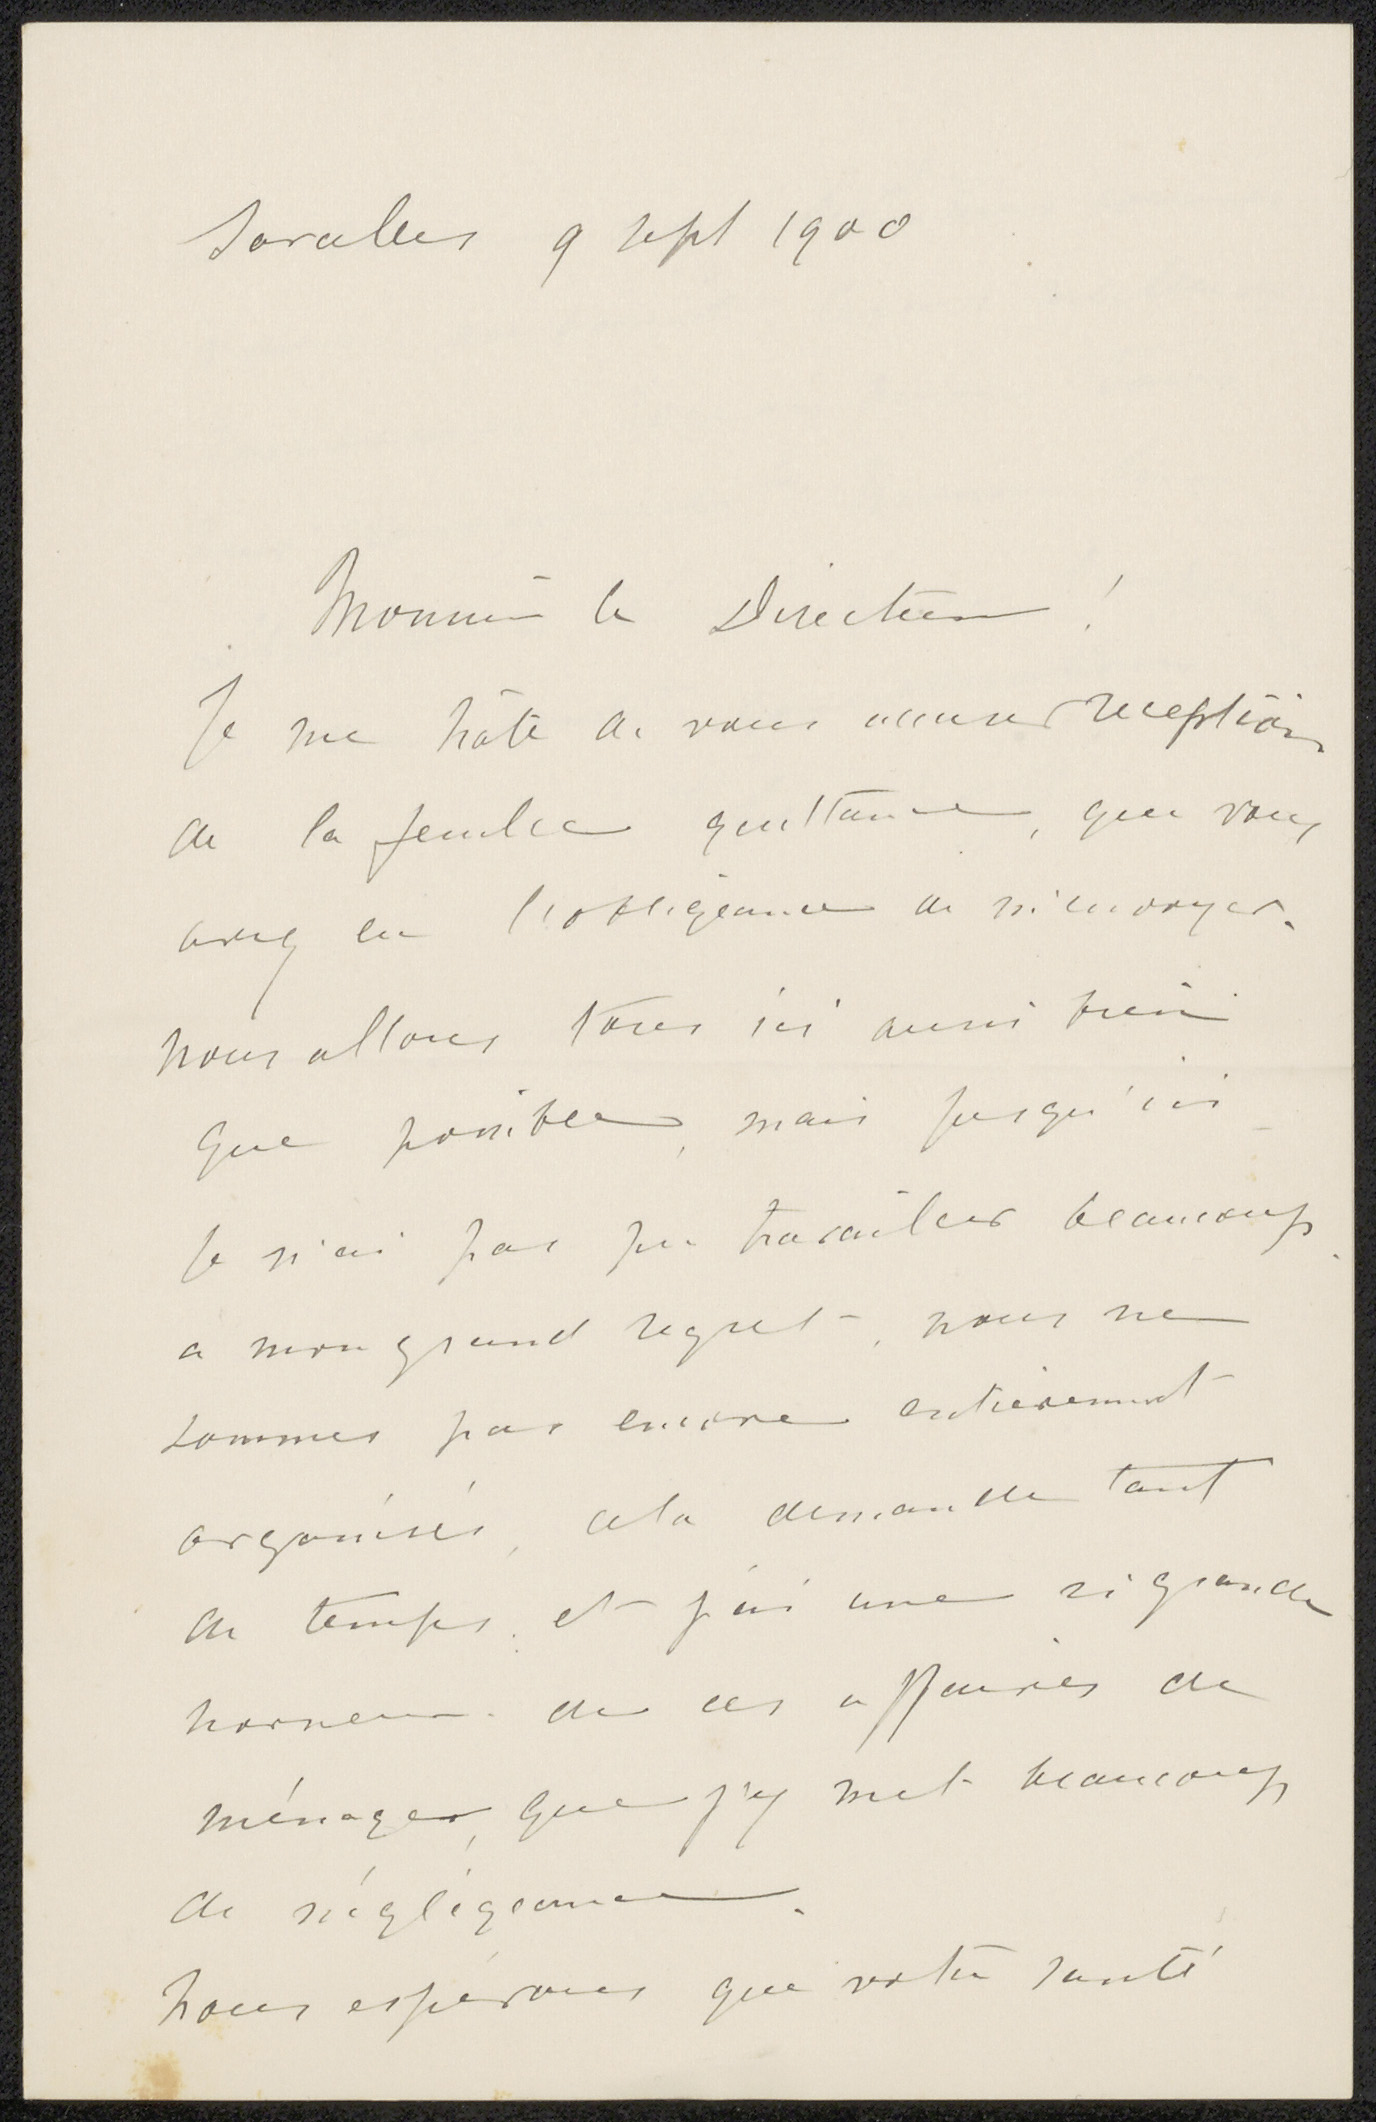 9 sept 1900
Monsieur le Directeur !
Je me hâte de vous accuser reception
de la feuille quittance, que vous
avez eu l'obligeance de m'envoyer.
nous allons tous ici aussi bien
que possible, mais jusqu'ici
je n'ai pas pu travailler beaucoup
a mon grand regret, nous ne
sommes pas encore entierement
organisés, cela demande tant
de temps, et j'ai une si grande
horreur de ces affaires de
ménages, que j'y met beaucoup
de négligeance.
Nous espérons que votre santé